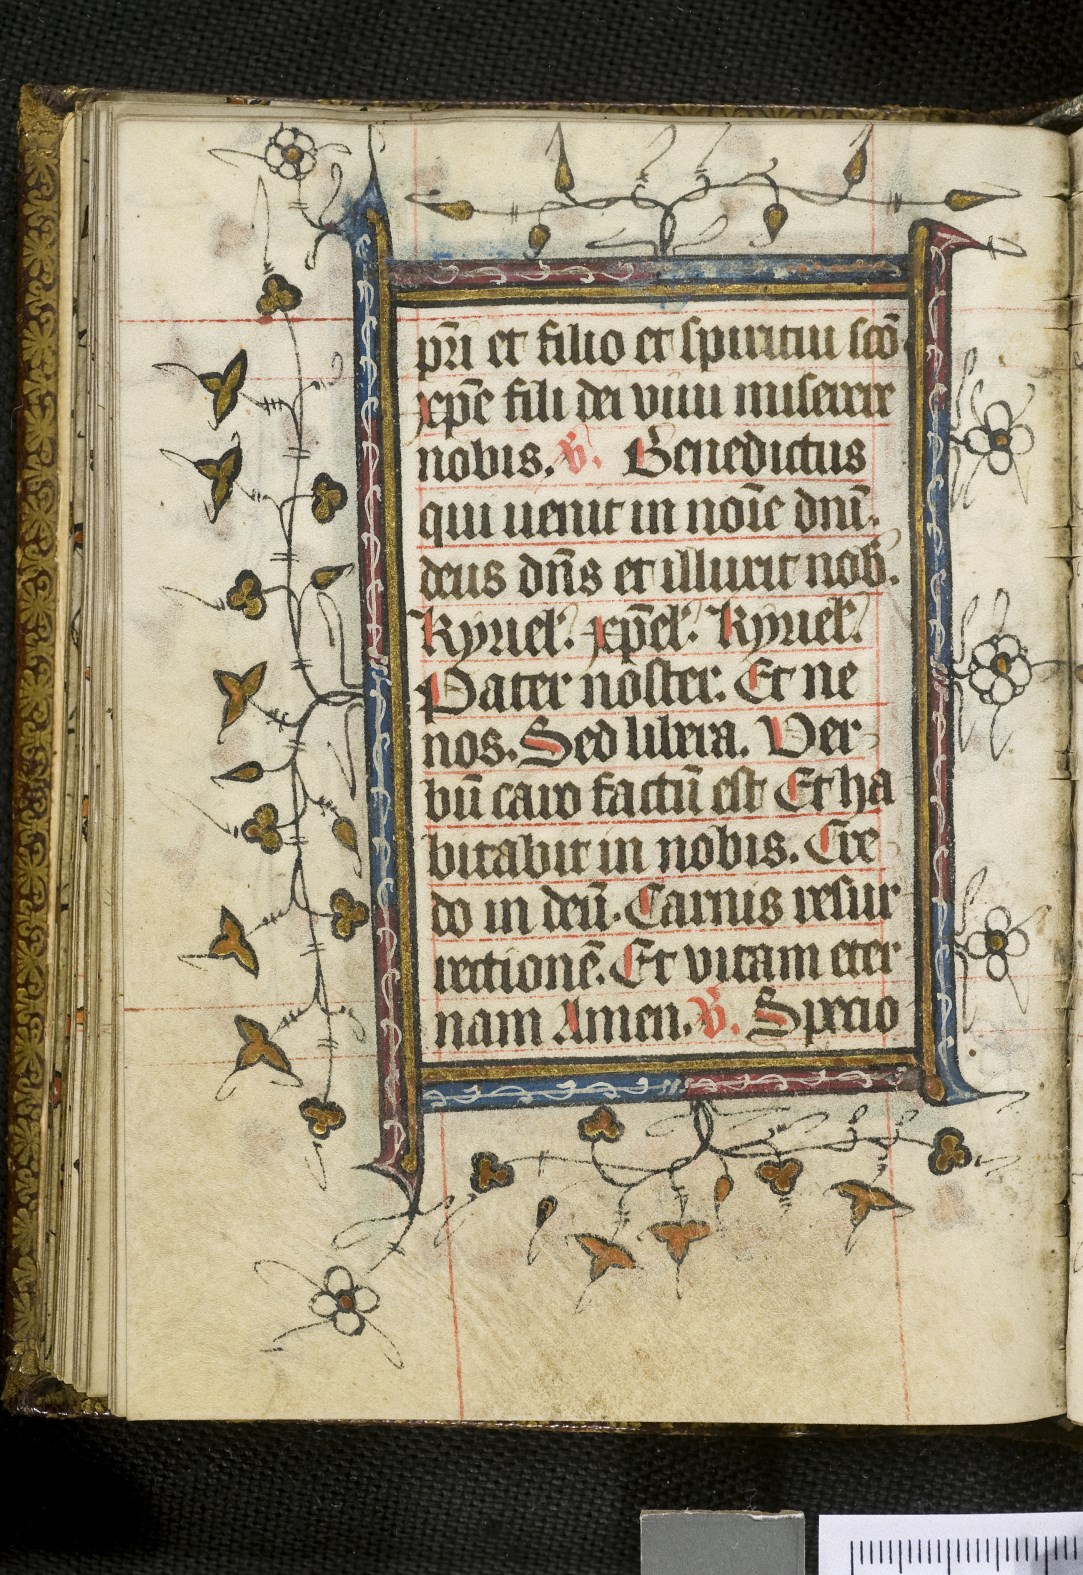 pr̄i et filio et spiritui sc̄o
xp̄e fili dei viui miserere
nobis. V. Benedictus
qui uenit in noīe dnī.
deus dn̄s et illuxit nob̄.
Kyriel'. xp̄el'. Kyriel'.
Pater noster. Et ne
nos. Sed libera. Ver
bū caro factū est Et ha
bitabit in nobis. Cre
do in deū. Carnis resur
rectionē. Et vitam eter
nam Amen. V. Specio